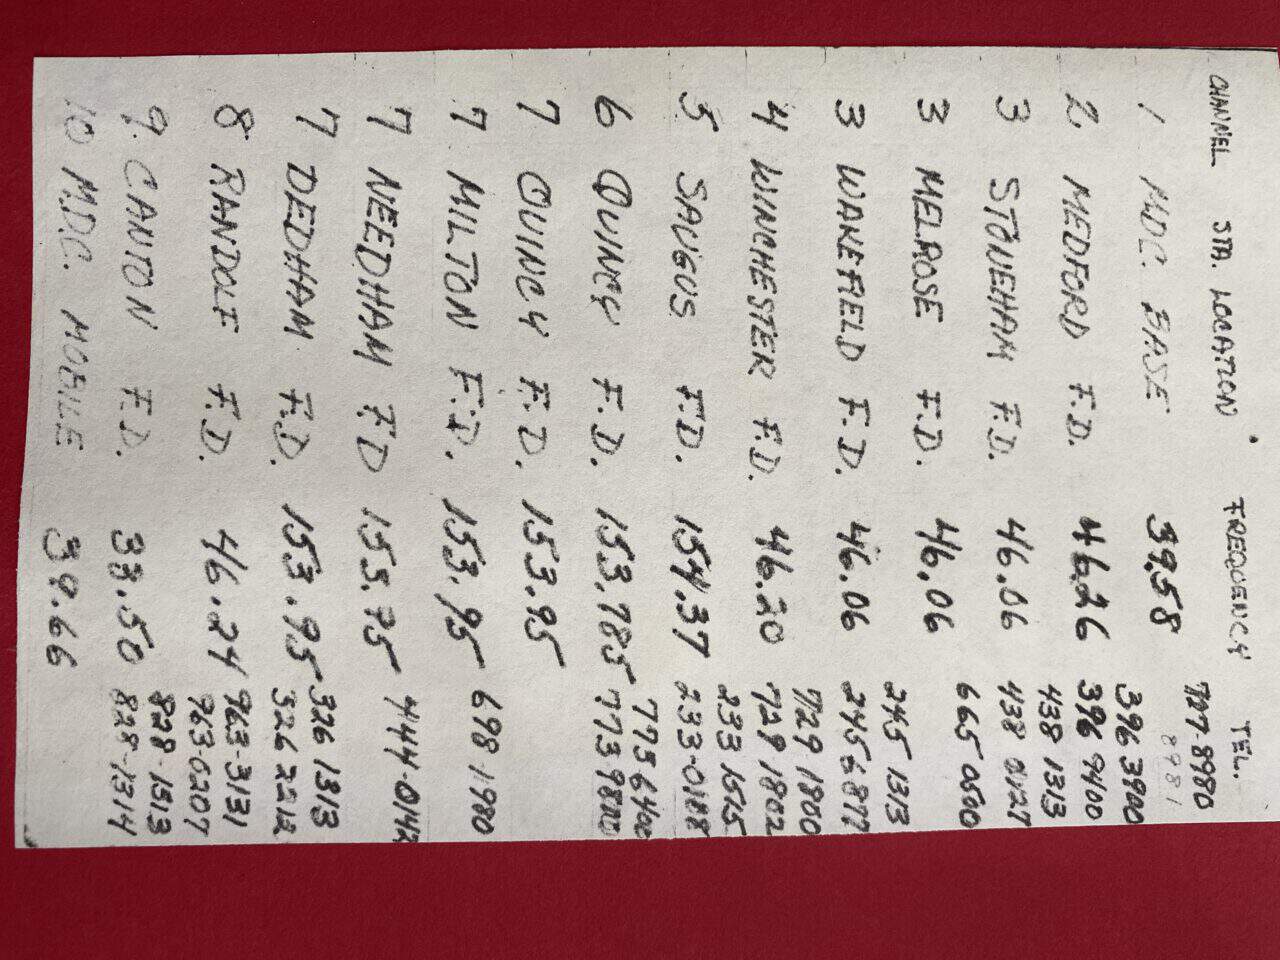 CHANNEL STA. LOCATION FREQUENCY TEL.
727-8980
8981
1 MDC. BASE 39.58
396 3900
2 MEDFORD F.D. 46.26 396 9400
438 1313
3 STONEHAM F.D. 46.06 438 0127
3 MELROSE F.D. 46.06 665 0500
245 1313
3 WAKEFIELD F.D. 46.06 245 6877
729 1800
4 WINCHESTER F.D. 46.20 729 1802
233 1575
5 SAUGUS F.D. 154.37 233-0188
773 6400
6 QUINCY F.D. 153.785 773 9800
7 QUINCY F.D. 153.95
7 MILTON F.D. 153.95 698-1980
7 NEEDHAM F.D 155.75 444-0142
326 1313
7 DEDHAM F.D. 153.95 326 2212
963-3131
8 RANDOLF F.D. 46.24 963-0207
828-1313
9. CANTON F.D. 33.50 828-1314
10 M.D.C. MOBILE 39.66